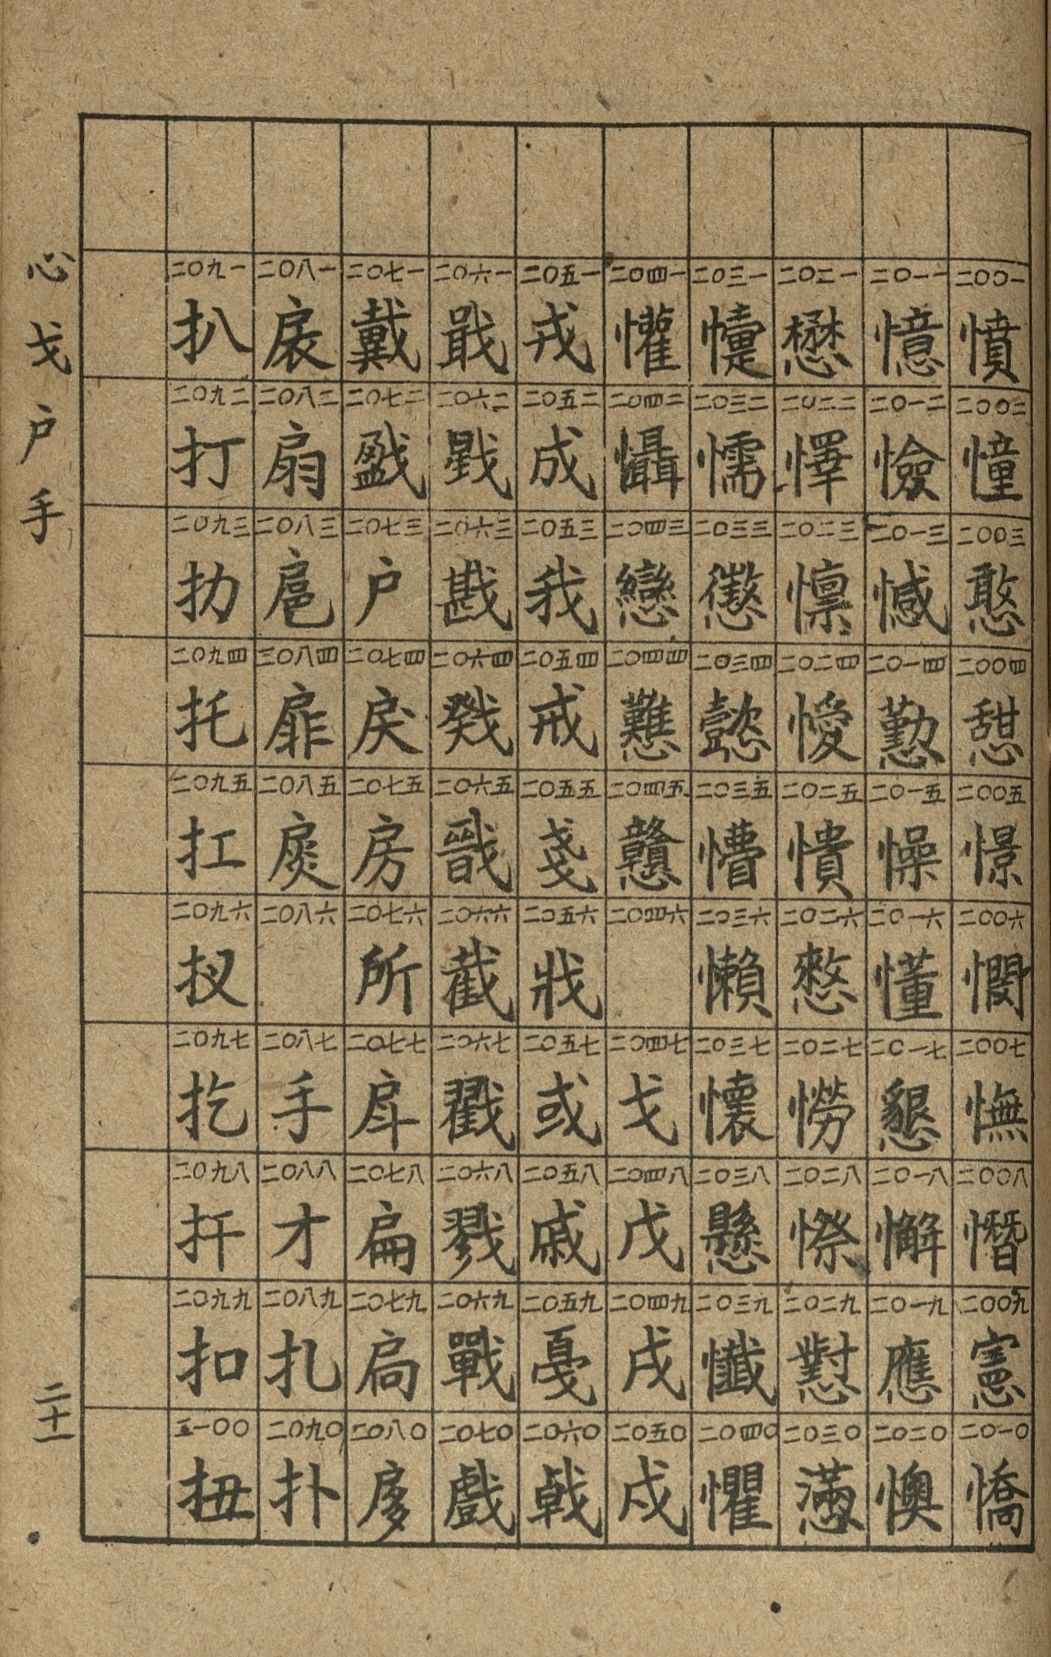 心戈户手
二十一
二〇〇一 憤 二〇〇二 憧 二〇〇三 憨 二〇〇四 憇 二〇〇五 憬 二〇〇六 憫 二〇〇七 憮 二〇〇八 憯 二〇〇九 憲 二〇一〇 憍
二〇一一 憶 二〇一二 憸 二〇一三 憾 二〇一四 懃 二〇一五 懆 二〇一六 懂 二〇一七 懇 二〇一八 懈 二〇一九 應 二〇二〇 懊
二〇二一 懋 二〇二二 懌 二〇二三 懍 二〇二四 懓 二〇二五 憒 二〇二六 憗 二〇二七 憦 二〇二八 憏 二〇二九 懟 二〇三〇 懣
二〇三一 懥 二〇三二 懦 二〇三三 懲 二〇三四 懿 二〇三五 懵 二〇三六 懶 二〇三七 懷 二〇三八 懸 二〇三九 懺 二〇四〇 懼
二〇四一 懽 二〇四二 懾 二〇四三 戀 二〇四四 戁 二〇四五 戇 二〇四六 二〇四七 戈 二〇四八 戊 二〇四九 戌 二〇五〇 戍
二〇五一 戎 二〇五二 成 二〇五三 我 二〇五四 戒 二〇五五 戔 二〇五六 戕 二〇五七 或 二〇五八 戚 二〇五九 戛 二〇六〇 戟
二〇六一 戢 二〇六二 戥 二〇六三 戡 二〇六四 戣 二〇六五 戩 二〇六六 截 二〇六七 戳 二〇六八 戮 二〇六九 戰 二〇七〇 戲
二〇七一 戴 二〇七二 戤 二〇七三 户 二〇七四 戾 二〇七五 房 二〇七六 所 二〇七七 戽 二〇七八 扁 二〇七九 扃 二〇八〇 扅
二〇八一 扆 二〇八二 扇 二〇八三 扈 三〇八四 扉 二〇八五 扊 二〇八六 二〇八七 手 二〇八八 才 二〇八九 扎 二〇九〇 扑
二〇九一 扒 二〇九二 打 二〇九三 扐 二〇九四 托 二〇九五 扛 二〇九六 扠 二〇九七 扢 二〇九八 扞 二〇九九 扣 二一〇〇 扭